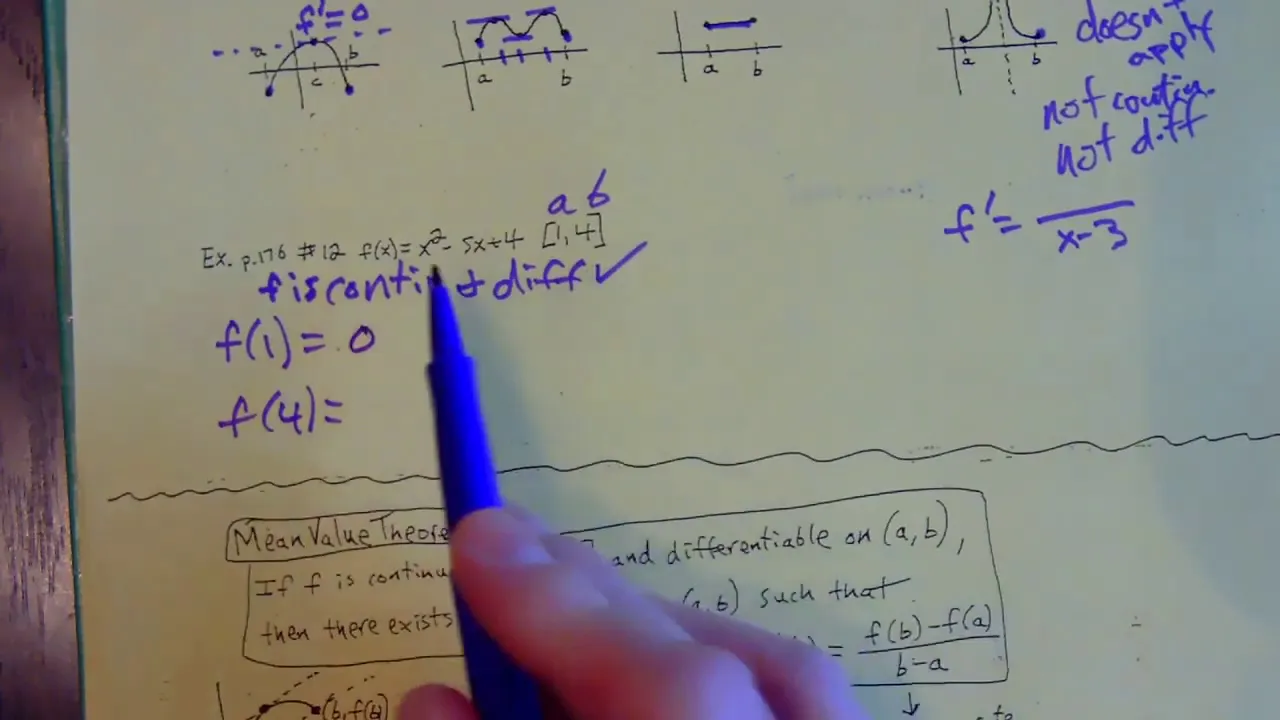 f'=0
a b
c
a b
a b
a b
doesn't
apply
not contin.
not diff
f'= x-3
a b
Ex. p.176 #12 f(x)= x²- 5x+4 [1,4]
f is conti + diff ✓
f(1)= 0
f(4)=
Mean Value Theore
If f is continu and differentiable on (a,b),
then there exists (a,b) such that
= f(b)-f(a)
b-a
(b,f(b))